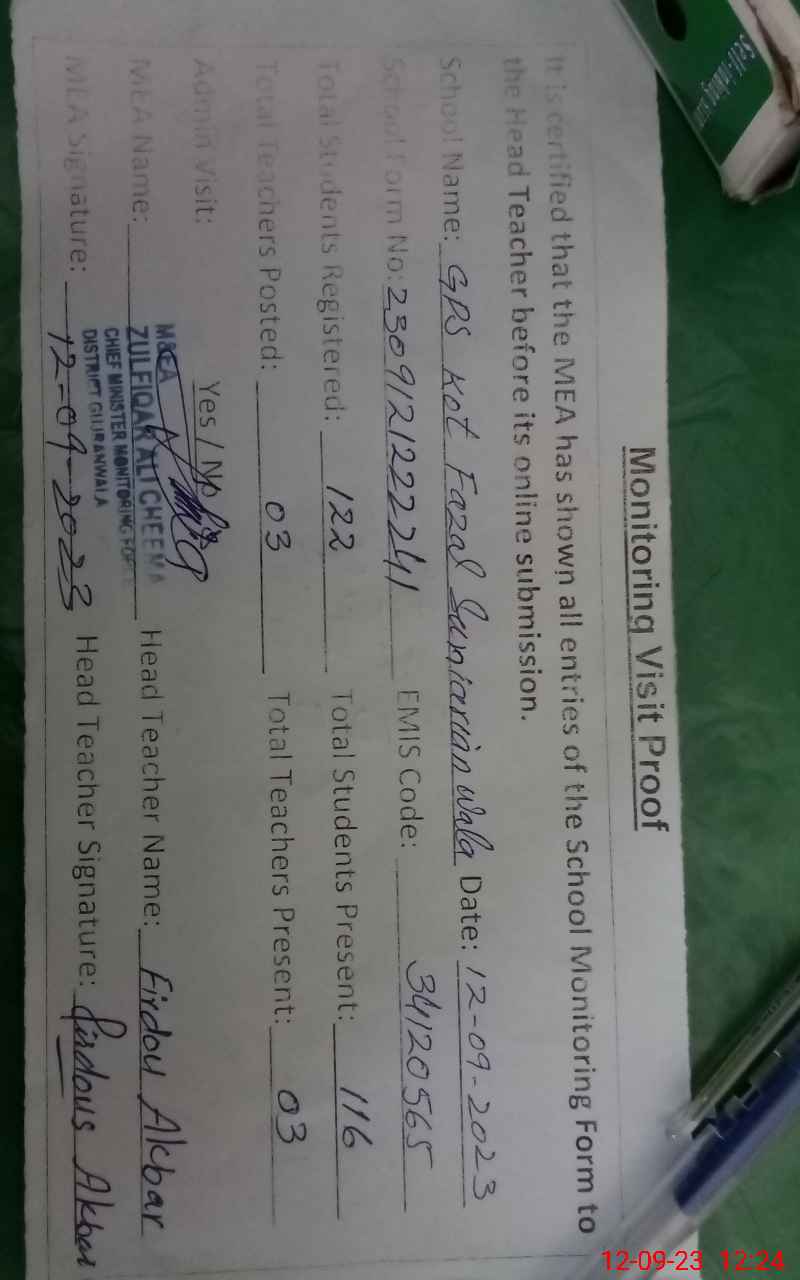 Monitoring Visit Proof
It is certified that the MEA has shown all entries of the School Monitoring Form to
the Head Teacher before its online submission.
School Name: GPS Kot Fazal Suniarian Wala Date: 12-09-2023
School Form No: 2309121222241 EMIS Code: 34120565
Total Students Registered: 122 Total Students Present: 116
Total Teachers Posted: 03 Total Teachers Present: 03
Admin Visit: Yes / No
MEA Name: Head Teacher Name: Firdou Akbar
M&EA
ZULFIQAR ALI CHEEMA
CHIEF MINISTER MONITORING FORCE
DISTRICT GUJRANWALA
MEA Signature: 12-09-2023 Head Teacher Signature: Firdous Akbar
12-09-23 12:24